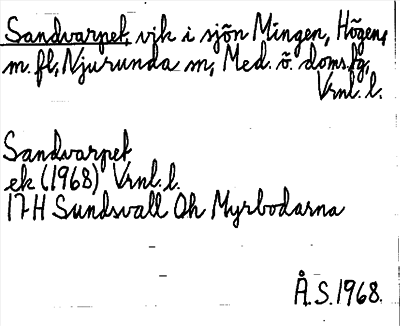 Sandvarpet, vik i sjön Mingen, Högen,
m. fl., Njurunda sn, Med. ö. doms.fg,
Vrnl. l.
Sandvarpet
ek (1968) Vrnl. l.
17H Sundsvall Öh Myrbodarna
Å.S. 1968.